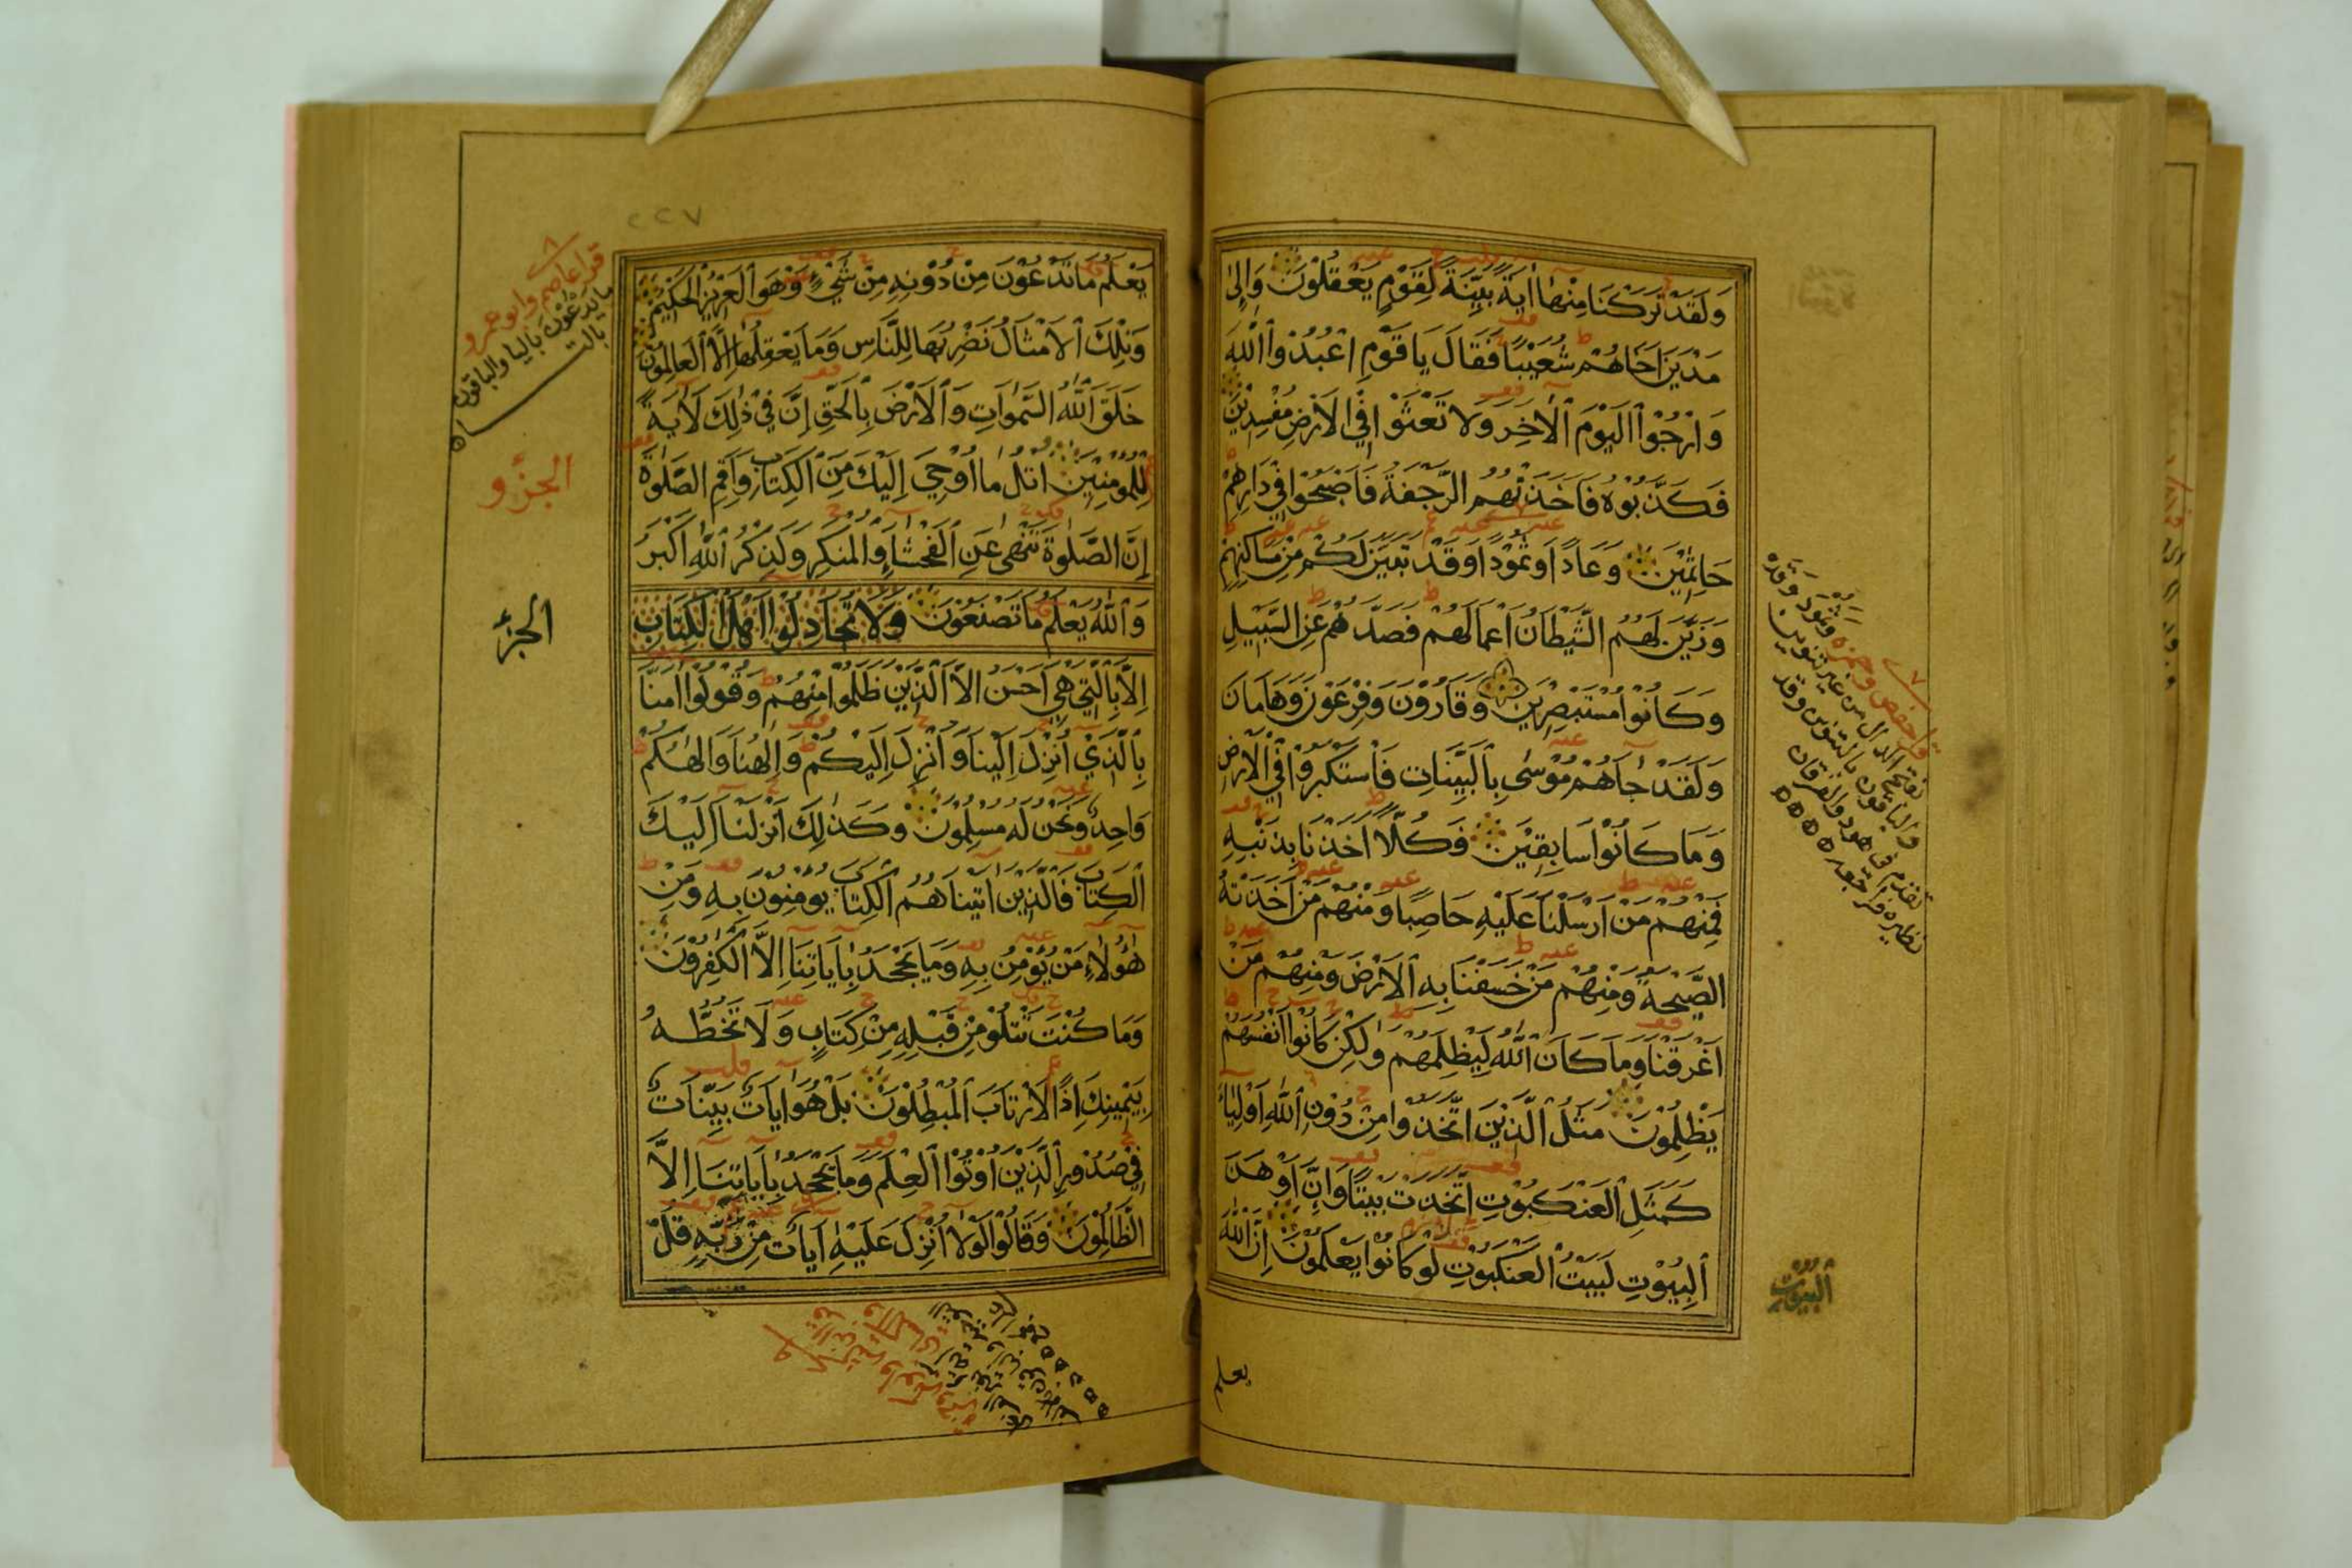 وَلَقَدْ تَرَكْنَا مِنْهَا آيَةً بَيِّنَةً لِقَوْمٍ يَعْقِلُوْنَ وَإِلىٰ
مَدْيَنَ اَخَاهُمْ شُعَيْبًا فَقَالَ يَا قَوْمِ اعْبُدُوا اللّٰهَ
وَارْجُوْا الْيَوْمَ الْآخِرَ وَلَا تَعْثَوْا فِي الْاَرْضِ مُفْسِدِيْنَ
فَكَذَّبُوْهُ فَاَخَذَتْهُمُ الرَّجْفَةُ فَاَصْبَحُوْا فِيْ دَارِهِمْ
جَاثِمِيْنَ وَعَادًا وَثَمُوْدًا وَقَدْ تَبَيَّنَ لَكُمْ مِنْ مَسَاكِنِهِمْ
وَزَيَّنَ لَهُمُ الشَّيْطَانُ اَعْمَالَهُمْ فَصَدَّهُمْ عَنِ السَّبِيْلِ
وَكَانُوْا مُسْتَبْصِرِيْنَ وَقَارُوْنَ وَفِرْعَوْنَ وَهَامَانَ
وَلَقَدْ جَآءَهُمْ مُوْسٰى بِالْبَيِّنَاتِ فَاسْتَكْبَرُوْا فِي الْاَرْضِ
وَمَا كَانُوْا سَابِقِيْنَ فَكُلًّا اَخَذْنَا بِذَنْبِهِ
فَمِنْهُمْ مَنْ اَرْسَلْنَا عَلَيْهِ حَاصِبًا وَمِنْهُمْ مَنْ اَخَذَتْهُ
الصَّيْحَةُ وَمِنْهُمْ مَنْ خَسَفْنَا بِهِ الْاَرْضَ وَمِنْهُمْ مَنْ
اَغْرَقْنَا وَمَا كَانَ اللّٰهُ لِيَظْلِمَهُمْ وَلٰكِنْ كَانُوْا اَنْفُسَهُمْ
يَظْلِمُوْنَ مَثَلُ الَّذِيْنَ اتَّخَذُوْا مِنْ دُوْنِ اللّٰهِ اَوْلِيَاءَ
كَمَثَلِ الْعَنْكَبُوْتِ اتَّخَذَتْ بَيْتًا وَاِنَّ اَوْهَنَ
الْبُيُوْتِ لَبَيْتُ الْعَنْكَبُوْتِ لَوْ كَانُوْا يَعْلَمُوْنَ اِنَّ اللّٰهَ
يعلم
قرا حفص وحمزة وثمود وقد
بفتح الدال من غير تنوين
والباقون بالتنوين وقد
تقدم في هود والفرقان
نظيره فراجعه
البيوت
٢٢٧
يَعْلَمُ مَا تَدْعُوْنَ مِنْ دُوْنِهِ مِنْ شَيْءٍ وَهُوَ الْعَزِيْزُ الْحَكِيْمُ
وَتِلْكَ الْاَمْثَالُ نَضْرِبُهَا لِلنَّاسِ وَمَا يَعْقِلُهَا اِلَّا الْعَالِمُوْنَ
خَلَقَ اللّٰهُ السَّمٰوَاتِ وَالْاَرْضَ بِالْحَقِّ اِنَّ فِيْ ذٰلِكَ لَاٰيَةً
لِلْمُؤْمِنِيْنَ اُتْلُ مَا اُوْحِيَ اِلَيْكَ مِنَ الْكِتَابِ وَاَقِمِ الصَّلٰوةَ
اِنَّ الصَّلٰوةَ تَنْهٰى عَنِ الْفَحْشَاءِ وَالْمُنْكَرِ وَلَذِكْرُ اللّٰهِ اَكْبَرُ
وَاللّٰهُ يَعْلَمُ مَا تَصْنَعُوْنَ وَلَا تُجَادِلُوْا اَهْلَ الْكِتَابِ
اِلَّا بِالَّتِيْ هِيَ اَحْسَنُ اِلَّا الَّذِيْنَ ظَلَمُوْا مِنْهُمْ وَقُوْلُوْا اٰمَنَّا
بِالَّذِيْ اُنْزِلَ اِلَيْنَا وَاُنْزِلَ اِلَيْكُمْ وَاِلٰهُنَا وَاِلٰهُكُمْ
وَاحِدٌ وَنَحْنُ لَهُ مُسْلِمُوْنَ وَكَذٰلِكَ اَنْزَلْنَا اِلَيْكَ
الْكِتَابَ فَالَّذِيْنَ اٰتَيْنَاهُمُ الْكِتَابَ يُؤْمِنُوْنَ بِهِ وَمِنْ
هٰؤُلَاءِ مَنْ يُؤْمِنُ بِهِ وَمَا يَجْحَدُ بِاٰيَاتِنَا اِلَّا الْكٰفِرُوْنَ
وَمَا كُنْتَ تَتْلُوْ مِنْ قَبْلِهِ مِنْ كِتَابٍ وَلَا تَخُطُّهُ
بِيَمِيْنِكَ اِذًا لَارْتَابَ الْمُبْطِلُوْنَ بَلْ هُوَ اٰيَاتٌ بَيِّنَاتٌ
فِيْ صُدُوْرِ الَّذِيْنَ اُوْتُوا الْعِلْمَ وَمَا يَجْحَدُ بِاٰيَاتِنَا اِلَّا
الظَّالِمُوْنَ وَقَالُوْا لَوْلَا اُنْزِلَ عَلَيْهِ اٰيَاتٌ مِنْ رَبِّهِ قُلْ
قرا عاصم وابو عمرو
ما يدعون باليا والباقون
بالتا
الجزو
الجزؤ